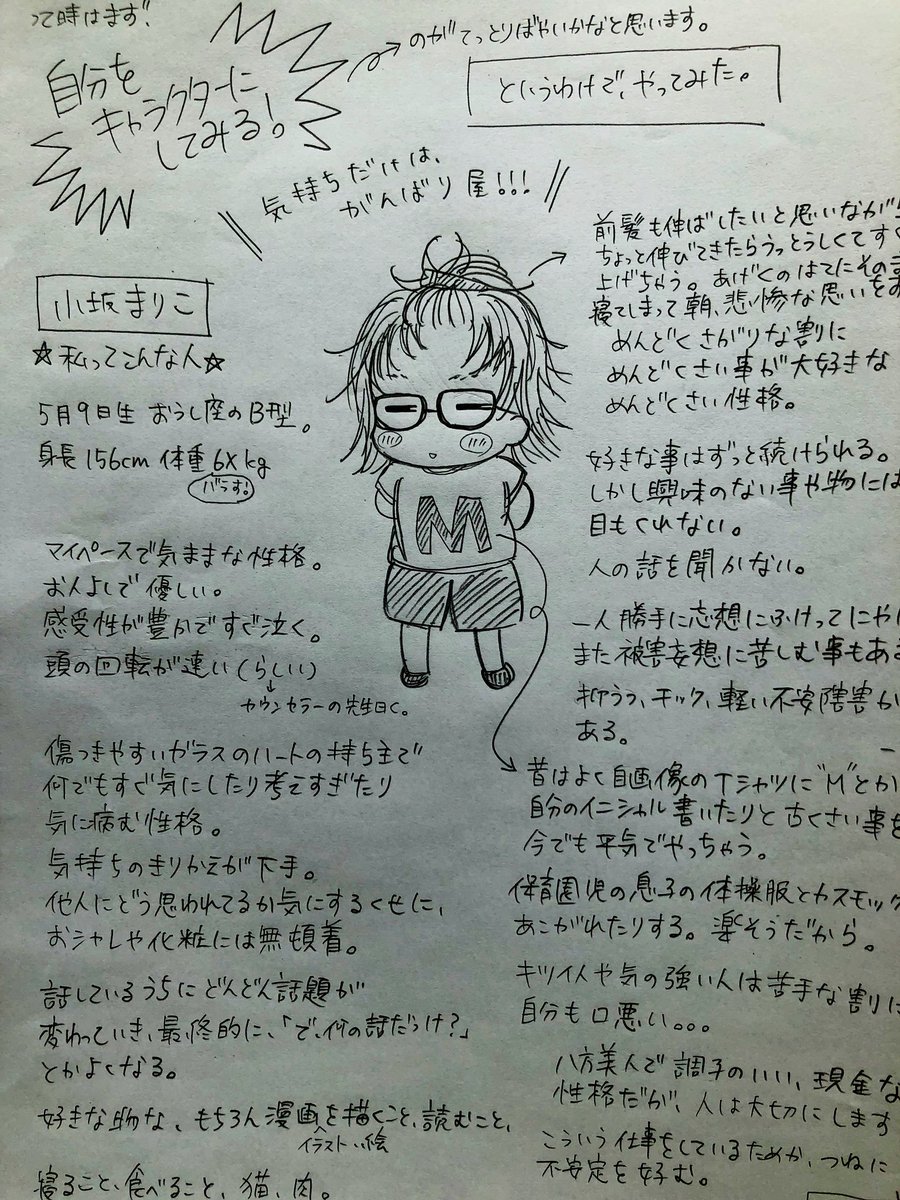 って時はまず!
自分を
キャラクターに
してみる!
のがてっとりばやいかなと思います。
というわけで、やってみた。
気持ちだけは、
がんばり屋!!!
小坂まりこ
☆私ってこんな人☆
5月9日生 おうし座のB型。
身長156cm 体重6Xkg
バラす!
マイペースで気ままな性格。
お人よしで優しい。
感受性が豊かですぐ泣く。
頭の回転が速い(らしい)
カウンセラーの先生曰く。
傷つきやすいガラスのハートの持ち主で
何でもすぐ気にしたり考えすぎたり
気に病む性格。
気持ちのきりかえが下手。
他人にどう思われてるか気にするくせに、
おシャレや化粧には無頓着。
話しているうちにどんどん話題が
変わっていき、最終的に、「で、何の話だっけ?」
とかよくなる。
好きな物な、もちろん漫画を描くこと、読むこと、
イラスト、絵
寝ること、食べること、猫、肉。
M
前髪も伸ばしたいと思いなが
ちょっと伸びてきたらうっとうしくてすぐ
上げちゃう。あげくのはてにその
寝てしまって朝、悲惨な思いを
めんどくさがりな割に
めんどくさい事が大好きな
めんどくさい性格。
好きな事はずっと続けられる。
しかし興味のない事や物には
目もくれない。
人の話を聞かない。
一人勝手に妄想にふけってにやけ
また被害妄想に苦しむ事もある
抑うつ、チック、軽い不安障害が
ある。
昔はよく自画像のTシャツに"M"とか
自分のイニシャル書いたりと古くさい事を
今でも平気でやっちゃう。
保育園児の息子の体操服とかスモック
あこがれたりする。楽そうだから。
キツイ人や気の強い人は苦手な割に
自分も口悪い。。。
八方美人で調子のいい、現金な
性格だが、人は大切にします
こういう仕事をしているためか、つねに
不安定を好む。